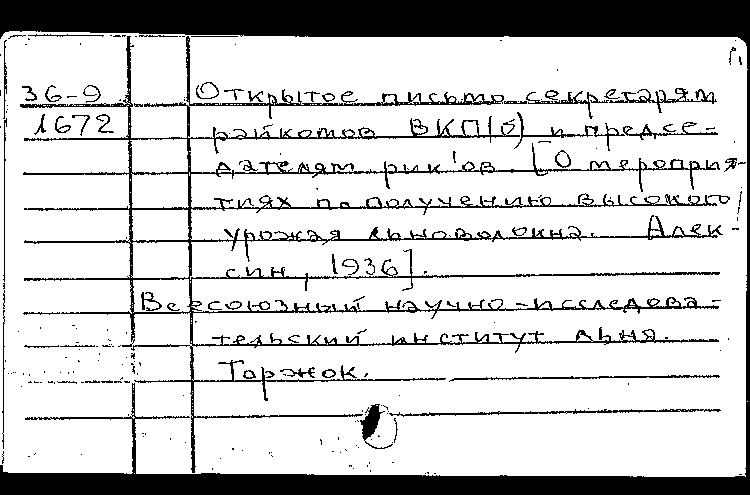 36-9 Открытое письмо секретарям
1672 райкомов ВКП(б) и предсе-
дателям рик'ов. [О мероприя-
тиях по получению высокого
урожая льноволокна. Алек-
син, 1936].
Всесоюзный научно-исследова-
тельский институт льна.
Торжок.